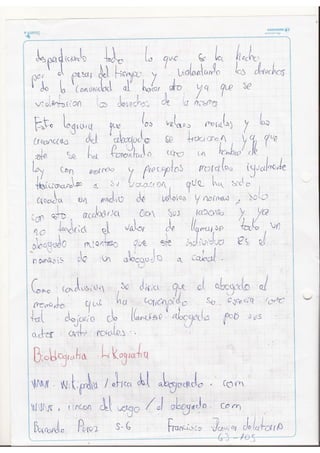 desperdiciando todo lo que se ha hecho
por el pasar del tiempo y violentando los derechos
de la comunidad al hacer esto ya que se
violentarian los derechos de la misma
Esto lograria que los valores morales y las
creencias del abogado se traicionen ya que
este se ha fomentado como un hombre de
ley con normas y preceptos morales igualmente
traicionando a su vocacion que ha sido
creada en medio de valores y normas y solo
con esto acabaria con sus razones y ya
no tendria el valor de llamarse todo un
abogado mientras que este individuo es el
nemesis de un abogado a cabal.
Como conclusion se diria que el abogado al
momento que ha corrompido su esencia como
tal dejaria de llamarse abogado por sus
actos anti morales.
Bibliografia Likografia
www.wikipedia/etica del abogado.com
www.rincon del vago/el abogado.com
Pérez 5-6 Francisco
63-105